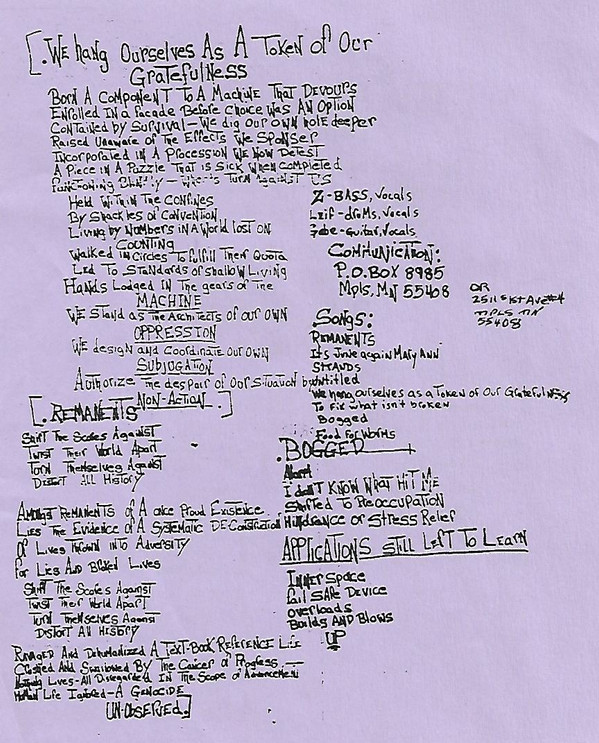 [. We hang Ourselves As A Token of Our
Gratefulness
Born A Component To A Machine That Devours
Enrolled In a facade Before Choice Was An Option
Contained by Survival - We dig Our OWN hole deeper
Raised Unaware of The Effects We Sponser
Incorporated in A Procession We Now Detest
A Piece in A Puzzle That is Sick When Completed
Functioning Blindly - Turn Against US
Held Within The Confines
By Shackles of Convention
Living by Numbers in A World lost on
Counting
Walked in Circles To fulfill Their Quota
Led To Standards of shallow Living
Hands Lodged In The gears of The
MACHINE
WE Stand as The Architects of our OWN
OPPRESSION
WE design and Coordinate our OWN
SUBJUGATION
Authorize The despair of Our Situation by
NON-ACTION .]
Z-BASS, Vocals
Leif-drums, Vocals
Gabe-Guitar, Vocals
Communication:
P.O. BOX 8985
Mpls, MN 55408
OR
2511 1st Ave #4
MPLS MN
55408
Songs:
REMANENTS
It's June again Mary Ann
STRANDS
Untitled
We hang ourselves as a Token of Our Gratefulness
To fix what isn't broken
Bogged
Food for Worms
[. REMANENTS
Shift The Scales Against
Twist Their World Apart
Turn Themselves Against
Distort All History
Amongst Remanents of A once Proud Existence
Lies The Evidence of A Systematic DE-Construction
Of Lives Thrown into Adversity
For Lies And Broked Lives
Shift The Scales Against
Twist Their World Apart
Turn Themselves Against
Distort All History
Ravaged And Dehumanized A Text-Book Reference Life
Crushed And Swallowed By The Cancer of Progress
Lives - All Disregarded In The Scope of Advancement
Human Life Ignored - A Genocide
UN-Observed.]
.BOGGED
Alarm
I don't Know What Hit Me
Shifted To Preoccupation
Hinderance or Stress Relief
APPLICATIONS still Left To Learn
Inner space
Fail SAFE Device
Overloads
Builds AND Blows
UP